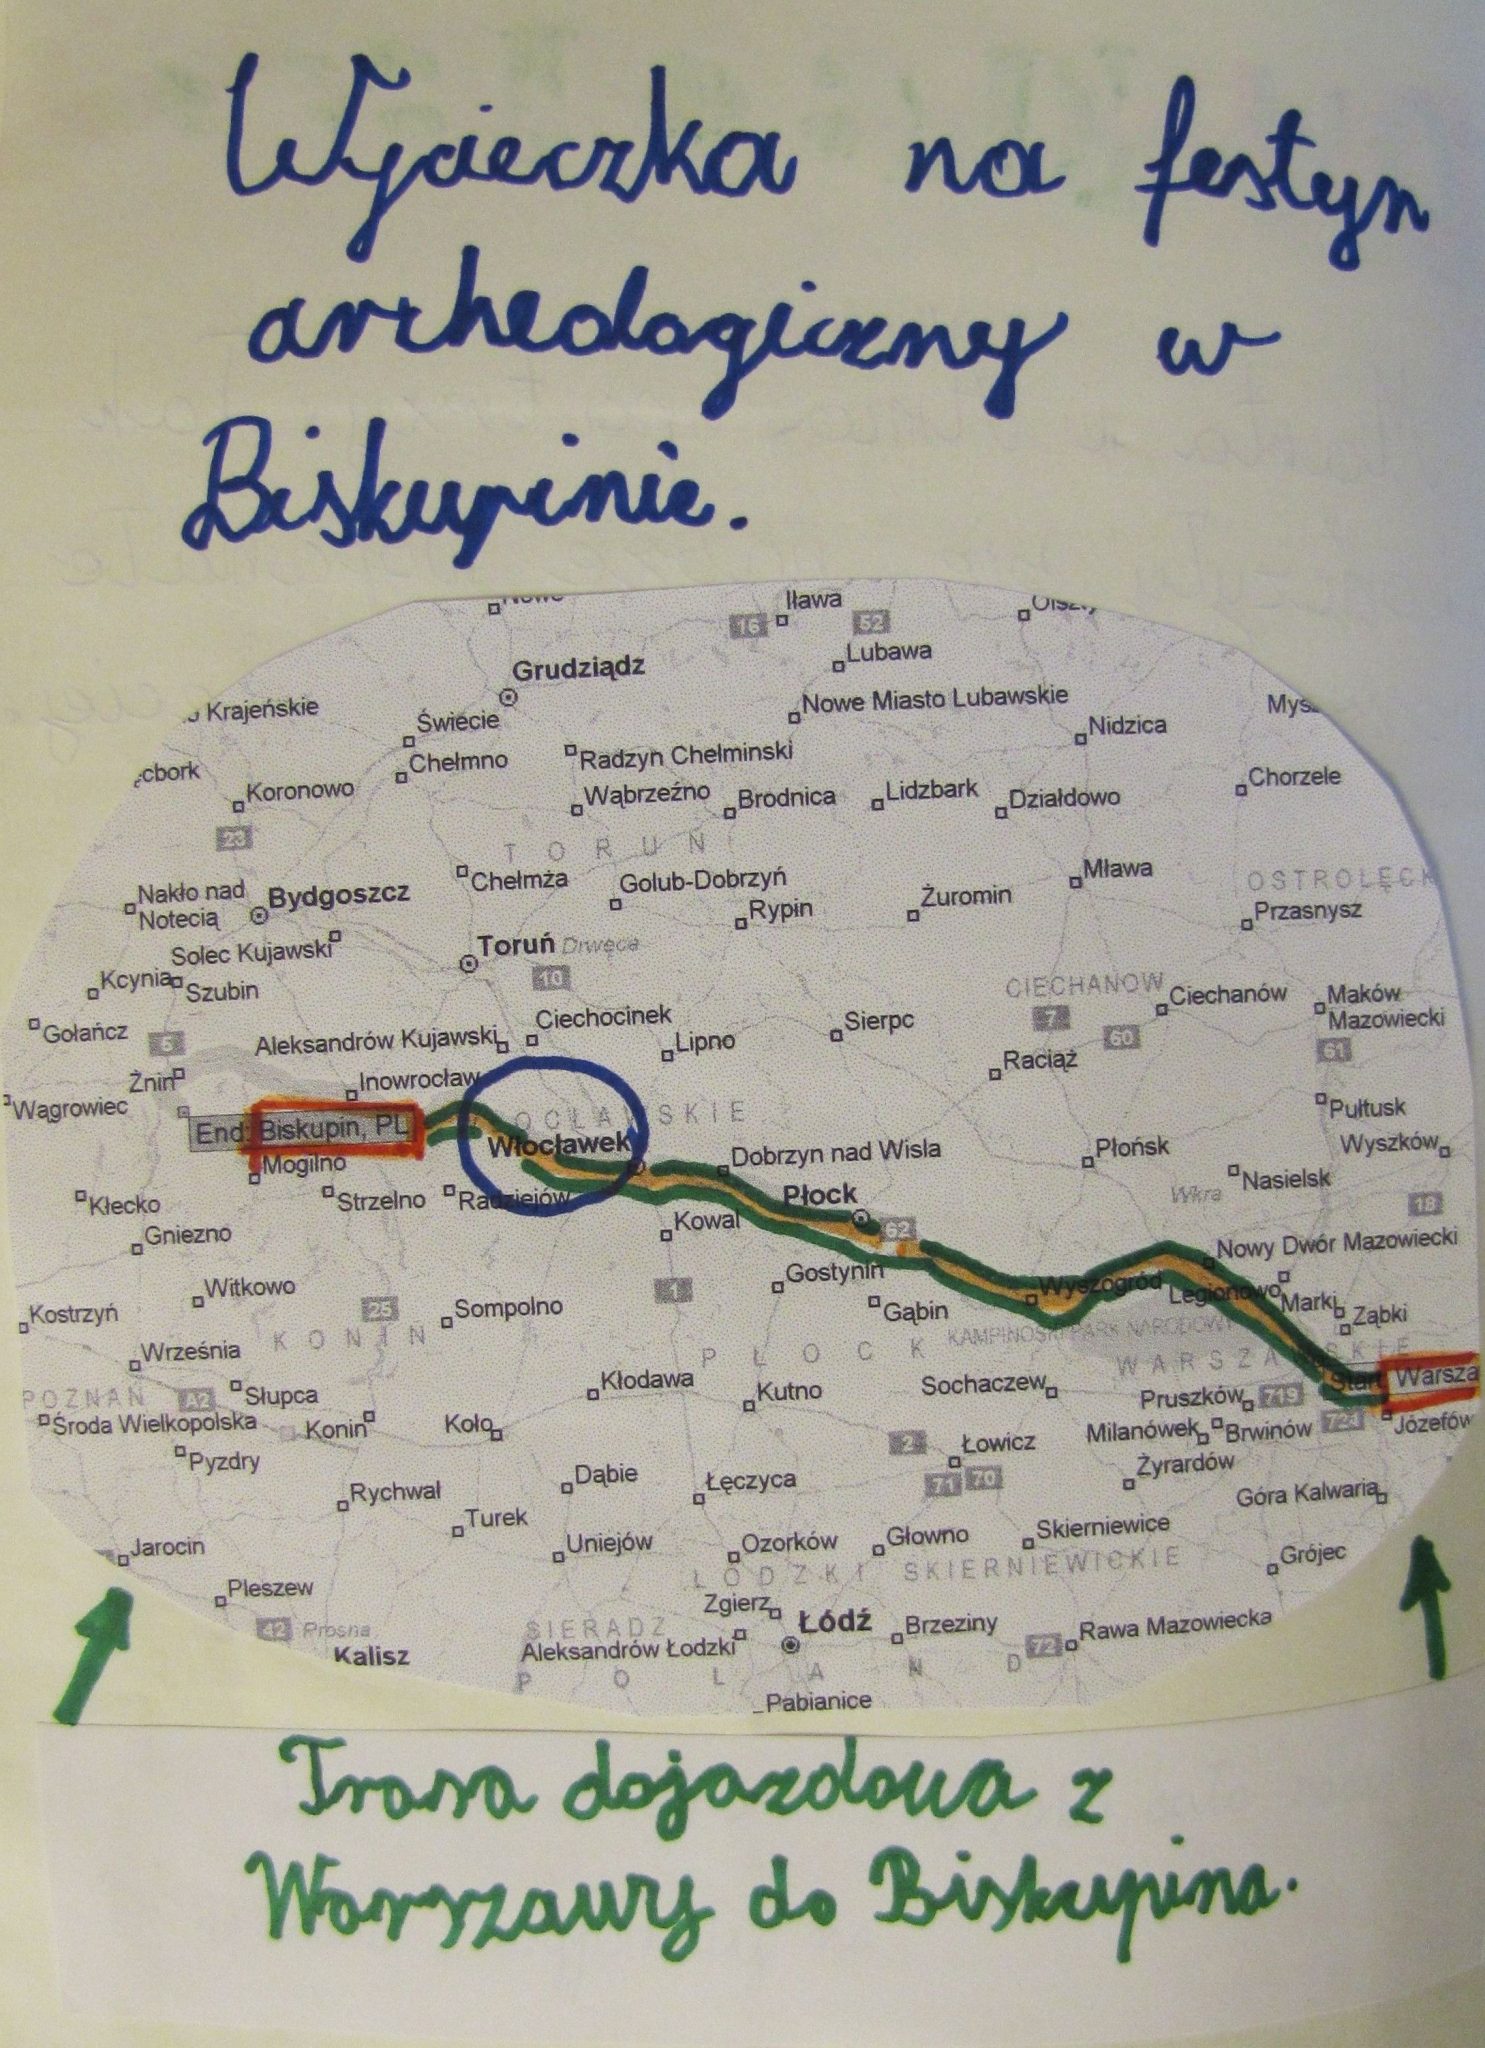 Wycieczka na festyn
archeologiczny w
Biskupinie.
Iława
16 52
Lubawa
Grudziądz
Krajeńskie
Świecie
Nowe Miasto Lubawskie
Nidzica
Chełmno
Radzyn Chełminski
Koronowo
Wąbrzeźno
Brodnica
Lidzbark
Działdowo
Chorzele
23
TORUN
Nakło nad
Notecią
Bydgoszcz
Chełmża
Golub-Dobrzyń
Rypin
Żuromin
Mława
Przasnysz
Solec Kujawski
Toruń
Drwęca
10
Kcynia
Szubin
CIECHANOW
Ciechanów
Maków
Mazowiecki
Gołańcz
5
Aleksandrów Kujawski
Ciechocinek
Lipno
Sierpc
7
60
61
Raciąż
Żnin
Inowrocław
Wągrowiec
Pułtusk
End: Biskupin, PL
Włocławek
Dobrzyn nad Wisla
Płońsk
Wyszków
Mogilno
Strzelno
Radziejów
Płock
Nasielsk
Wkra
18
Kłecko
Kowal
62
Gniezno
Nowy Dwór Mazowiecki
Witkowo
1
Gostynin
Wyszogród
Legionowo
Marki
Ząbki
Kostrzyń
25
Sompolno
Gąbin
KONIN
KAMPINOSKI PARK NARODOWY
Września
PŁOCK
WARSZAWSKIE
Start Warsza
POZNAŃ
A2
Słupca
Kłodawa
Kutno
Sochaczew
Pruszków
719
Środa Wielkopolska
Konin
Koło
Milanówek
Brwinów
724
Józefów
Pyzdry
2
Łowicz
Dąbie
Łęczyca
71 70
Żyrardów
Rychwał
Góra Kalwaria
Turek
Uniejów
Ozorków
Głowno
Skierniewice
Jarocin
Grójec
ŁODZKI SKIERNIEWICKIE
Pleszew
Zgierz
42
Prosna
SIERADZ
Łódź
Brzeziny
72
Rawa Mazowiecka
Kalisz
Aleksandrów Łodzki
POLAND
Pabianice
Trasa dojazdowa z
Warszawy do Biskupina.